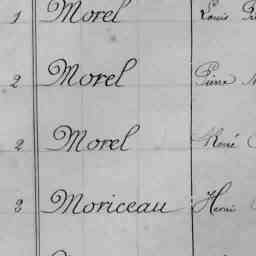 1 Morel Louis
2 Morel Pierre
2 Morel René
2 Moriceau Henri